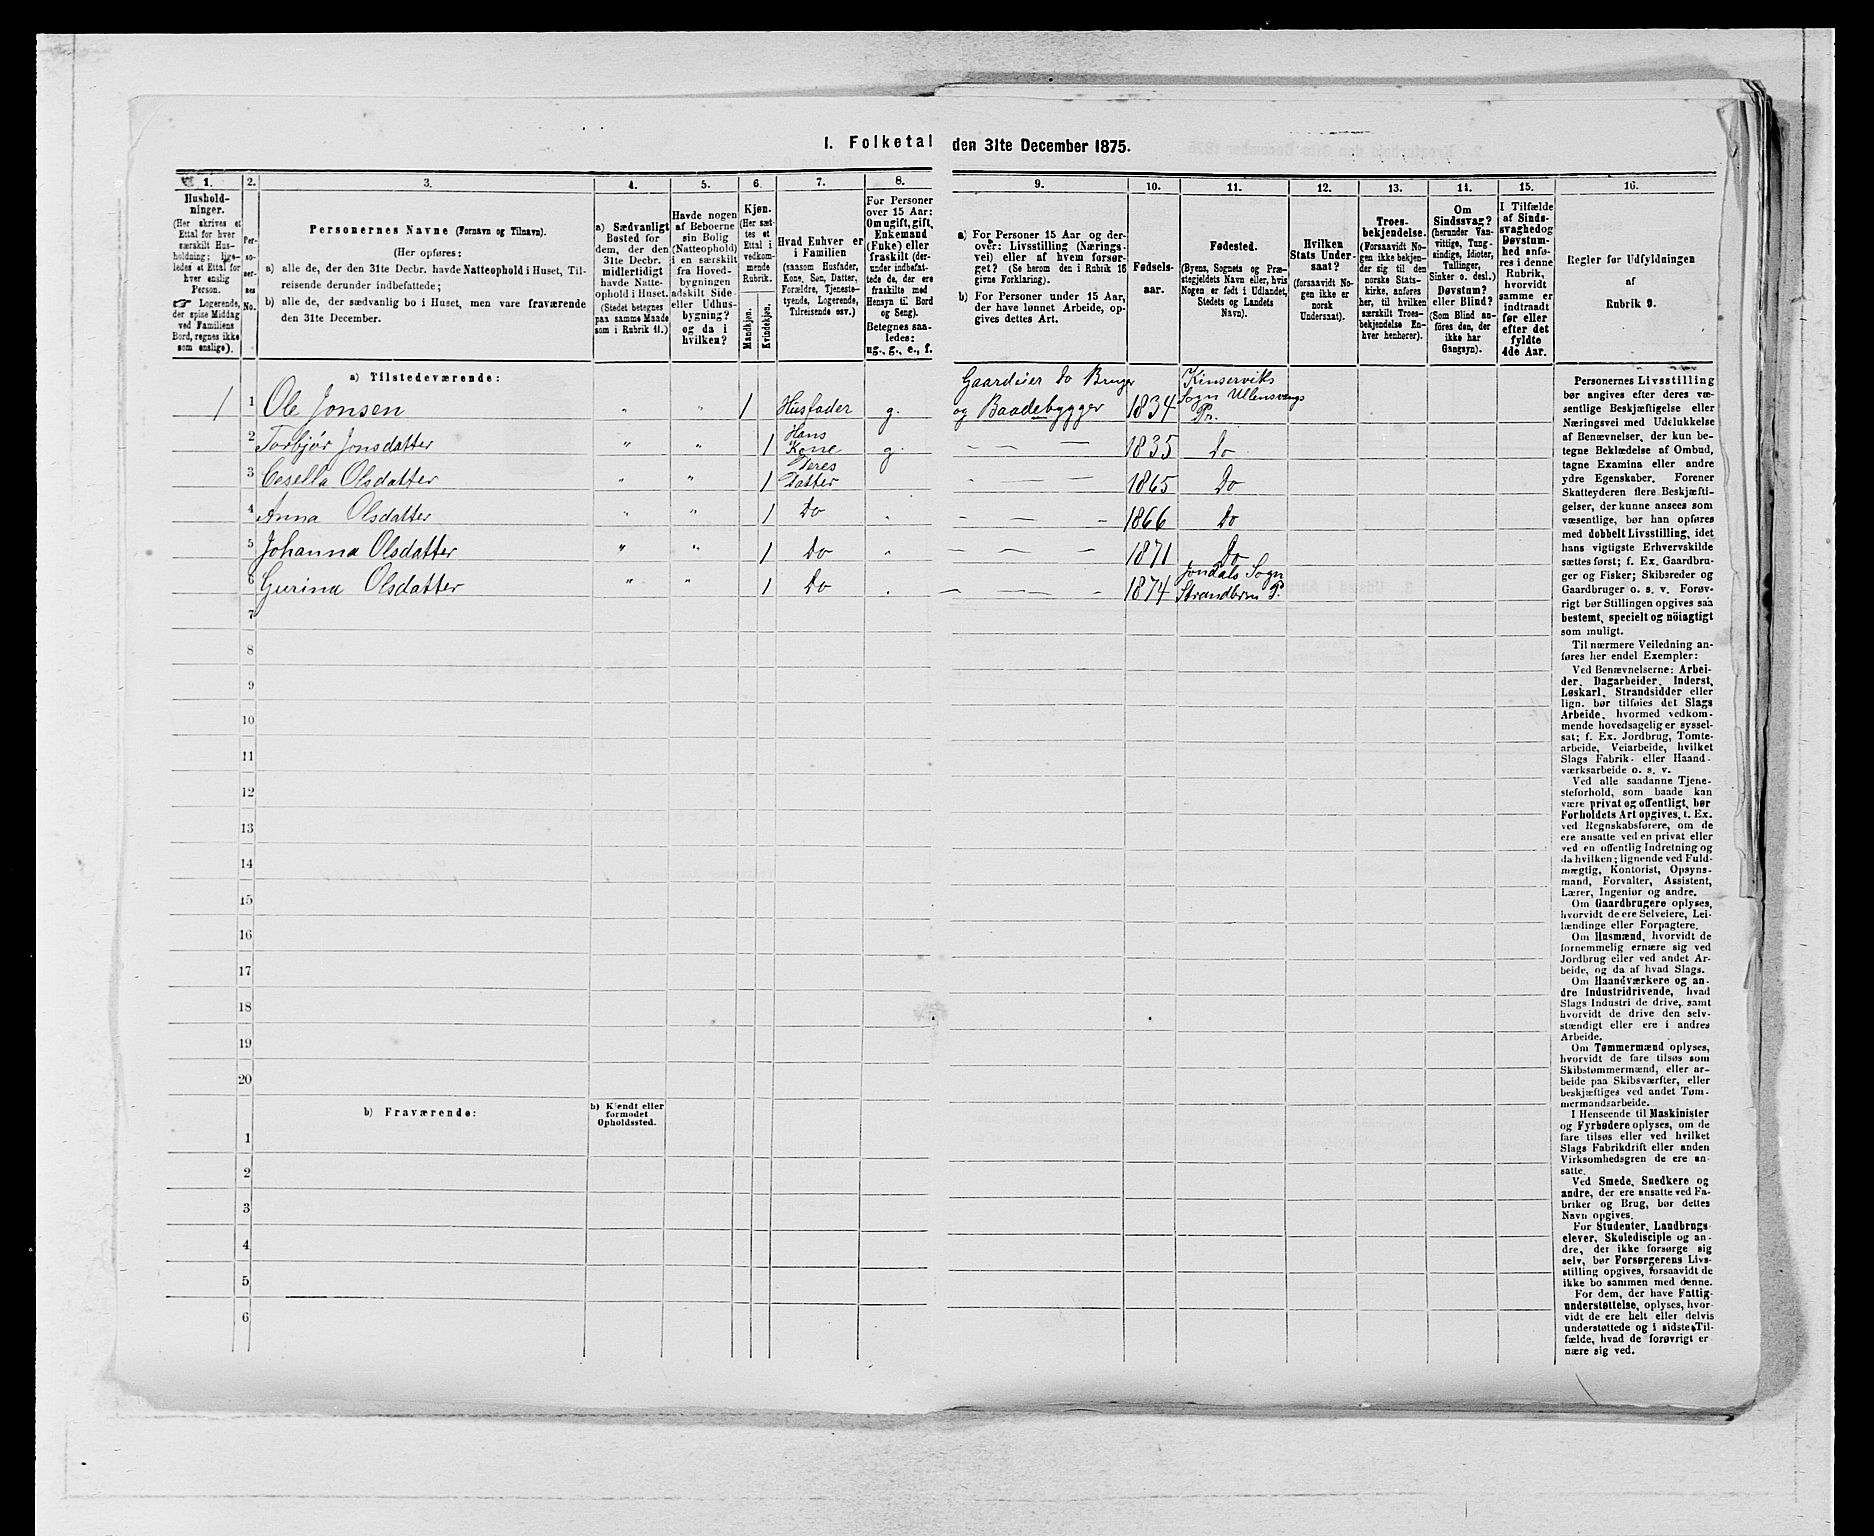 I. Folketal den 31te December 1875.
1. 2. 3. 4. 5. 6. 7. 8. 9. 10. 11. 12. 13. 14. 15. 16.
Hushold-
ninger.
(Her skrives et
Ettal for hver
særskilt Hus-
holdning; lige-
ledes et Ettal for
hver enslig
Person.
☞ Logerende,
der spise Middag
ved Familiens
Bord, regnes ikke
som enslige).
Per-
so-
ner-
nes
No.
Personernes Navne (Fornavn og Tilnavn).
(Her opføres:
a) alle de, der den 31te Decbr. havde Natteophold i Huset, Til-
reisende derunder indbefattede;
b) alle de, der sædvanlig bo i Huset, men vare fraværende
den 31te December.
a) Sædvanligt
Bosted for
dem, der den
31te Decbr.
midlertidigt
havde Natte-
ophold i Huset.
(Stedet betegnes
paa samme Maade
som i Rubrik 11.)
Havde nogen
af Beboerne
sin Bolig
(Natteophold)
i en særskilt
fra Hoved-
bygningen
adskilt Side-
eller Udhus-
bygning?
og da i
hvilken?
Kjøn.
(Her sæt-
tes et
Ettal i
vedkom-
mende
Rubrik.
Mandkjøn.
Kvindekjøn.
Hvad Enhver er
i Familien
(saasom Husfader,
Kone, Søn, Datter,
Forældre, Tjeneste-
tyende, Logerende,
Tilreisende osv.)
For Personer
over 15 Aar:
Om ugift, gift,
Enkemand
(Enke) eller
fraskilt (der-
under indbefat-
tede de, der ere
fraskilte med
Hensyn til Bord
og Seng).
Betegnes saa-
ledes:
ug., g., e., f.
a) For Personer 15 Aar og der-
over: Livsstilling (Nærings-
vei) eller af hvem forsør-
get? (Se herom den i Rubrik 16
givne Forklaring).
b) For Personer under 15 Aar,
der have lønnet Arbeide, op-
gives dettes Art.
Fødsels-
aar.
Fødested.
(Byens, Sognets og Præ-
stegjeldets Navn eller, hvis
Nogen er født i Udlandet,
Stedets og Landets
Navn).
Hvilken
Stats Under-
saat?
(forsaavidt No-
gen ikke er
norsk
Undersaat).
Troes-
bekjendelse.
(Forsaavidt No-
gen ikke bekjen-
der sig til den
norske Stats-
kirke, anføres
her, til hvilken
særskilt Troes-
bekjendelse En-
hver henhører).
Om
Sindssvag?
(herunder Van-
vittige, Tung-
sindige, Idioter,
Tullinger,
Sinker o. desl.)
Døvstum?
eller Blind?
(Som Blind an-
føres den, der
ikke har
Gangsyn).
I Tilfælde
af Sinds-
svaghed og
Døvstum-
hed anfø-
res i denne
Rubrik,
hvorvidt
samme er
indtraadt
før eller
efter det
fyldte
4de Aar.
Regler for Udfyldningen
af
Rubrik 9.
a) Tilstedeværende:
1 1 Ole Jonsen " " 1 Husfader g. Gaardeier do Bruger og Baadebygger 1834 Kinserviks Sogn Ullensvangs Pr.
2 Torbjør Jonsdatter " " 1 Hans Kone g. — — — 1835 Do
3 Cesella Olsdatter " " 1 Deres Datter — — — 1865 Do
4 Anna Olsdatter " " 1 Do " — — — 1866 Do
5 Johanna Olsdatter " " 1 Do " — — — 1871 Do
6 Gurina Olsdatter " " 1 Do " — — — 1874 Jondals Sogn Strandbrm P.
7
8
9
10
11
12
13
14
15
16
17
18
19
20
b) Fraværende:
b) Kjendt eller
formodet
Opholdssted.
1
2
3
4
5
6
Personernes Livsstilling
bør angives efter deres væ-
sentlige Beskjæftigelse eller
Næringsvei med Udelukkelse
af Benævnelser, der kun be-
tegne Beklædelse af Ombud,
tagne Examina eller andre
ydre Egenskaber. Forener
Skatteyderen flere Beskjæfti-
gelser, der kunne ansees som
væsentlige, bør han opføres
med dobbelt Livsstilling, idet
hans vigtigste Erhvervskilde
sættes først; f. Ex. Gaardbru-
ger og Fisker; Skibsreder og
Gaardbruger o. s. v. Forøv-
rigt bør Stillingen opgives saa
bestemt, specielt og nöiagtigt
som muligt.
Til nærmere Veiledning an-
føres her endel Exempler:
Ved Benævnelserne: Arbei-
der, Dagarbeider, Inderst,
Løskarl, Strandsidder eller
lign. bør tilføies det Slags
Arbeide, hvormed vedkom-
mende hovedsagelig er syssel-
sat; f. Ex. Jordbrug, Tomte-
arbeide, Veiarbeide, hvilket
Slags Fabrik- eller Haand-
værksarbeide o. s. v.
Ved alle saadanne Tjene-
steforhold, som baade kan
være privat og offentligt, bør
Forholdets Art opgives, t. Ex.
ved Regnskabsførere, om de
ere ansatte ved en privat eller
ved en offentlig Indretning og
da hvilken; lignende ved Fuld-
mægtig, Kontorist, Opsyns-
mand, Forvalter, Assistent,
Lærer, Ingeniør og andre.
Om Gaardbrugere oplyses,
hvorvidt de ere Selveiere, Lei-
lændinge eller Forpagtere.
Om Husmænd, hvorvidt de
fornemmelig ernære sig ved
Jordbrug eller ved andet Ar-
beide, og da af hvad Slags.
Om Haandværkere og an-
dre Industridrivende, hvad
Slags Industri de drive, samt
hvorvidt de drive den selv-
stændigt eller ere i andres
Arbeide.
Om Tømmermænd oplyses,
hvorvidt de fare tilsøs som
Skibstømmermænd, eller ar-
beide paa Skibsværfter, eller
beskjæftiges ved andet Tøm-
mermandsarbeide.
I Henseende til Maskinister
og Fyrbødere oplyses, om de
fare tilsøs eller ved hvilket
Slags Fabrikdrift eller anden
Virksomhedsgren de ere an-
satte.
Ved Smede, Snedkere og
andre, der ere ansatte ved Fa-
briker og Brug, bør dettes
Navn opgives.
For Studenter, Landbrugs-
elever, Skoledisciple og an-
dre, der ikke forsørge sig
selv, bør Forsørgerens Livs-
stilling opgives, forsaavidt de
ikke bo sammen med denne.
For dem, der have Fattig-
understøttelse, oplyses, hvor-
vidt de ere helt eller delvis
understøttede og i sidste Til-
fælde, hvad de forøvrigt er-
nære sig ved.